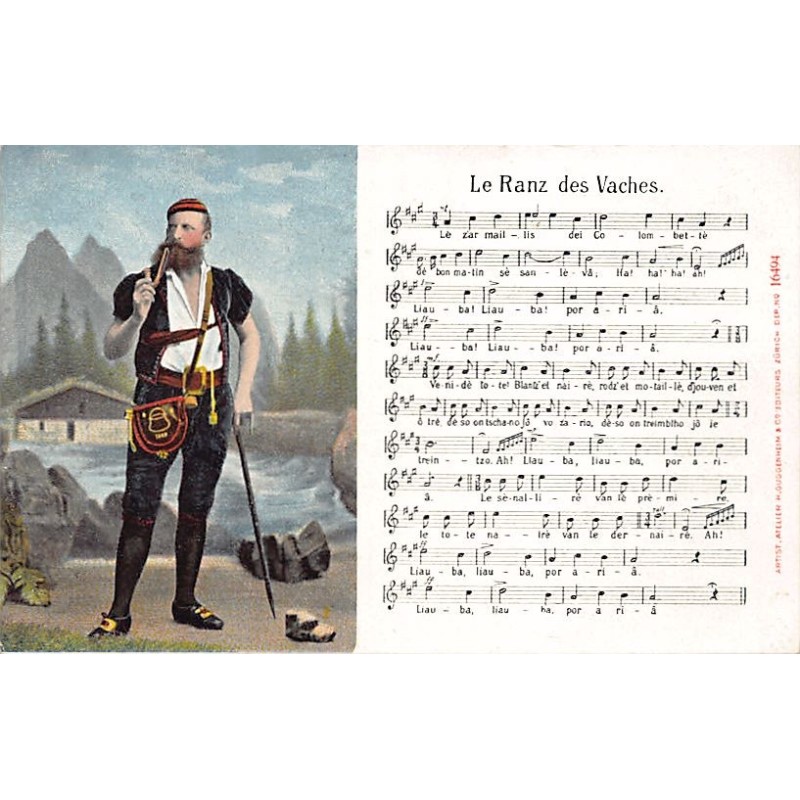 Le Ranz des Vaches.
Lè zar mail - lis dei Co - lom - bet - tè
dè bon ma-tin sè san - lè - vâ; Ha! ha! ha! ah!
Liau - ba! Liau - ba! por a - ri - â.
Liau - ba! Liau - ba! por a - ri - â.
Ve-ni-dè to-te! Blantz' et naî-rè, rodz' et mo-tail-lè, djou-ven et
ô trè, dè so on tscha-no jô vo za-rio, dè-so on treimblho jô ie
trein - tzo. Ah! Liau - ba, liau - ba, por a - ri -
â. Lè sè-nal-li - rè van lè prè - mi - re.
le to-te na - îrè van le der-nai-rè. Ah!
Liau - ba, liau - ba, por a - ri - â.
Liau - ba, liau - ba, por a ri - â
ARTIST. ATELIER H. GUGGENHEIM & Co EDITEURS ZÜRICH DEP. No 16494